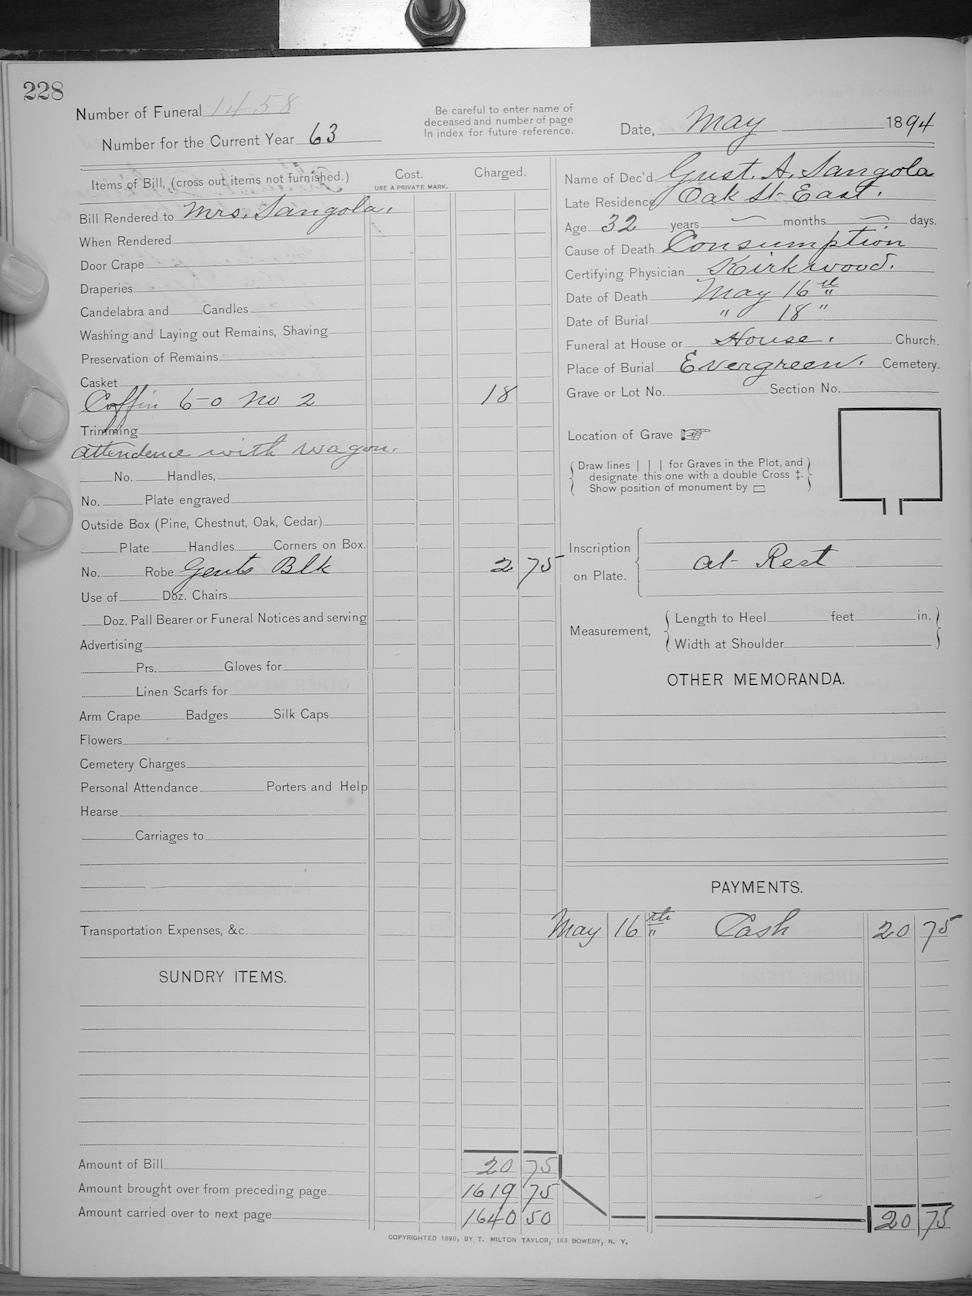 228
Number of Funeral 1458
Number for the Current Year 63
Be careful to enter name of
deceased and number of page
in index for future reference.
Date, May 1894
Items of Bill, (cross out items not furnished.)
Cost.
USE A PRIVATE MARK.
Charged.
Bill Rendered to Mrs. Sangola.
When Rendered
Door Crape
Draperies
Candelabra and Candles
Washing and Laying out Remains, Shaving
Preservation of Remains
Casket
Coffin 6-0 No 2 18
Trimming
attendence with wagon.
No. Handles,
No. Plate engraved
Outside Box (Pine, Chestnut, Oak, Cedar)
Plate Handles Corners on Box.
No. Robe Gents Blk 2 75
Use of Doz. Chairs
Doz. Pall Bearer or Funeral Notices and serving
Advertising
Prs. Gloves for
Linen Scarfs for
Arm Crape Badges Silk Caps
Flowers
Cemetery Charges
Personal Attendance Porters and Help
Hearse
Carriages to
Transportation Expenses, &c.
SUNDRY ITEMS.
Amount of Bill 20 75
Amount brought over from preceding page 1619 75
Amount carried over to next page 1640 50
Name of Dec'd Gust. A. Sangola
Late Residence Oak St East.
Age 32 years — months — days.
Cause of Death Consumption
Certifying Physician Kirkwood.
Date of Death May 16th
Date of Burial " 18 "
Funeral at House or House. Church.
Place of Burial Evergreen. Cemetery.
Grave or Lot No. Section No.
Location of Grave
Draw lines | | | for Graves in the Plot, and
designate this one with a double Cross ‡.
Show position of monument by ▭
Inscription
on Plate.
at Rest
Measurement,
Length to Heel feet in.
Width at Shoulder
OTHER MEMORANDA.
PAYMENTS.
May 16th Cash 20 75
20 75
COPYRIGHTED 1890, BY T. MILTON TAYLOR, 163 BOWERY, N. Y.